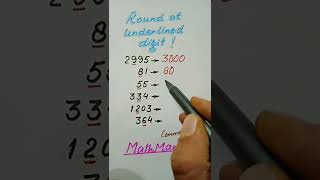 Round at
underlined
digit !
2995 → 3000
81 → 80
55 →
334 →
1203 →
364 →
MathMa